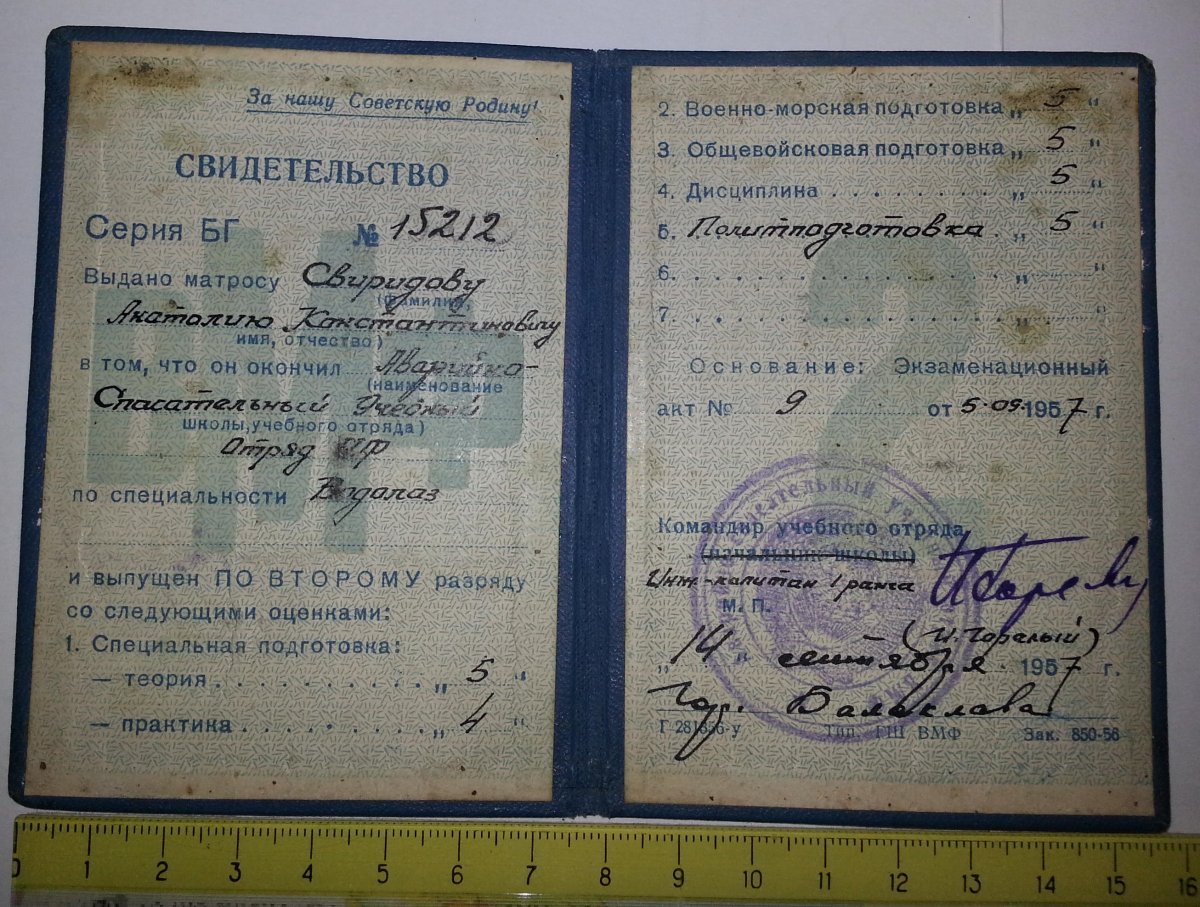 За нашу Советскую Родину!
СВИДЕТЕЛЬСТВО
Серия БГ № 15212
Выдано матросу Свиридову
(фамилия,
Анатолию Константиновичу
имя, отчество)
в том, что он окончил Аварийно-
(наименование
Спасательный Учебный
школы, учебного отряда)
Отряд ЧФ
по специальности Водолаз
и выпущен ПО ВТОРОМУ разряду
со следующими оценками:
1. Специальная подготовка:
— теория . . . . . . . . . . . „ 5 "
— практика . . . . . . . . . . „ 4 "
2. Военно-морская подготовка „ 5 "
3. Общевойсковая подготовка „ 5 "
4. Дисциплина . . . . . . . . „ 5 "
5. Политподготовка . „ 5 "
6. . . . . . . . . . . . . . . „ "
7. . . . . . . . . . . . . . . „ "
Основание: Экзаменационный
акт № 9 от 5.09.1957 г.
Командир учебного отряда
(начальник школы)
Инж-капитан 1 ранга
М. П.
„14" сентября 1957 г.
Гор. Балаклава
Тип. ГШ ВМФ Зак. 850-56
0 1 2 3 4 5 6 7 8 9 10 11 12 13 14 15 16